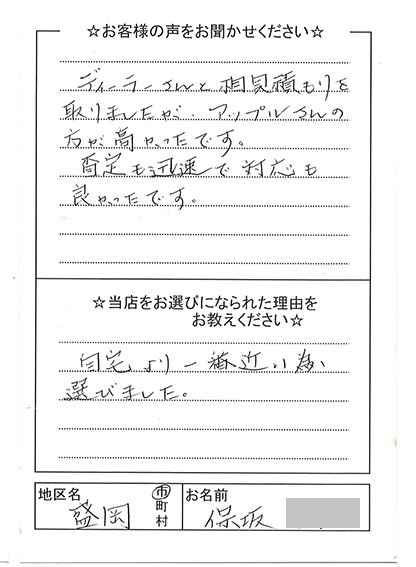 ☆お客様の声をお聞かせください☆
ディーラーさんと相見積もりを
取りましたが、アップルさんの
方が高かったです。
査定も迅速で対応も
良かったです。
☆当店をお選びになられた理由を
お教えください☆
自宅より一番近い為
選びました。
地区名
盛岡
市
町
村
お名前
保坂